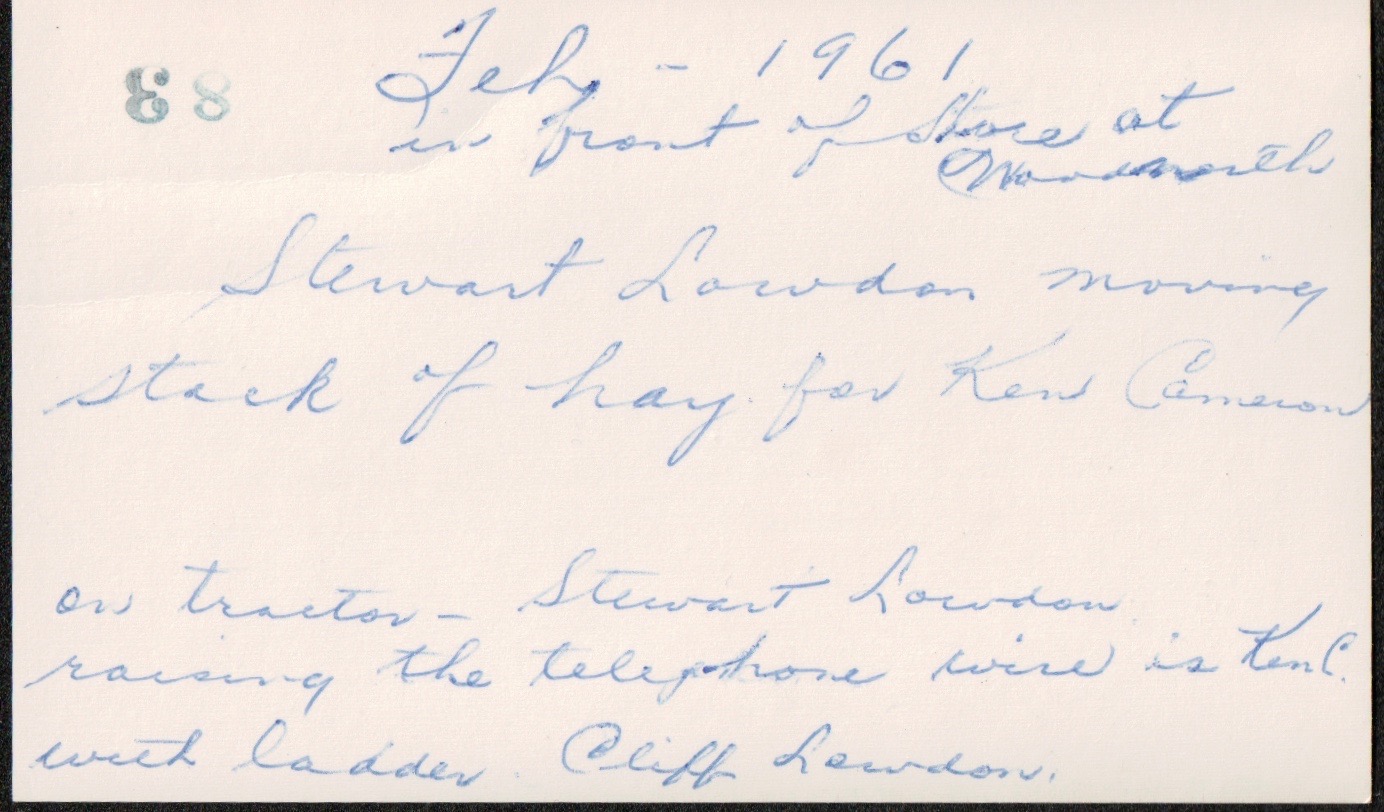 83
Feb, - 1961
in front of Store at
Woodnorth
Stewart Lowdon moving
stack of hay for Ken Cameron
on tractor - Stewart Lowdon
raising the telephone wire is Ken C.
with ladder. Cliff Lowdon.